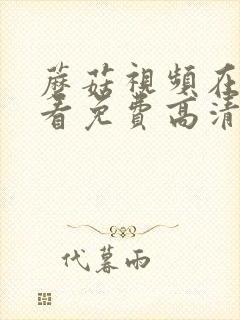 蘑菇視頻在
看免費高清
代暮雨